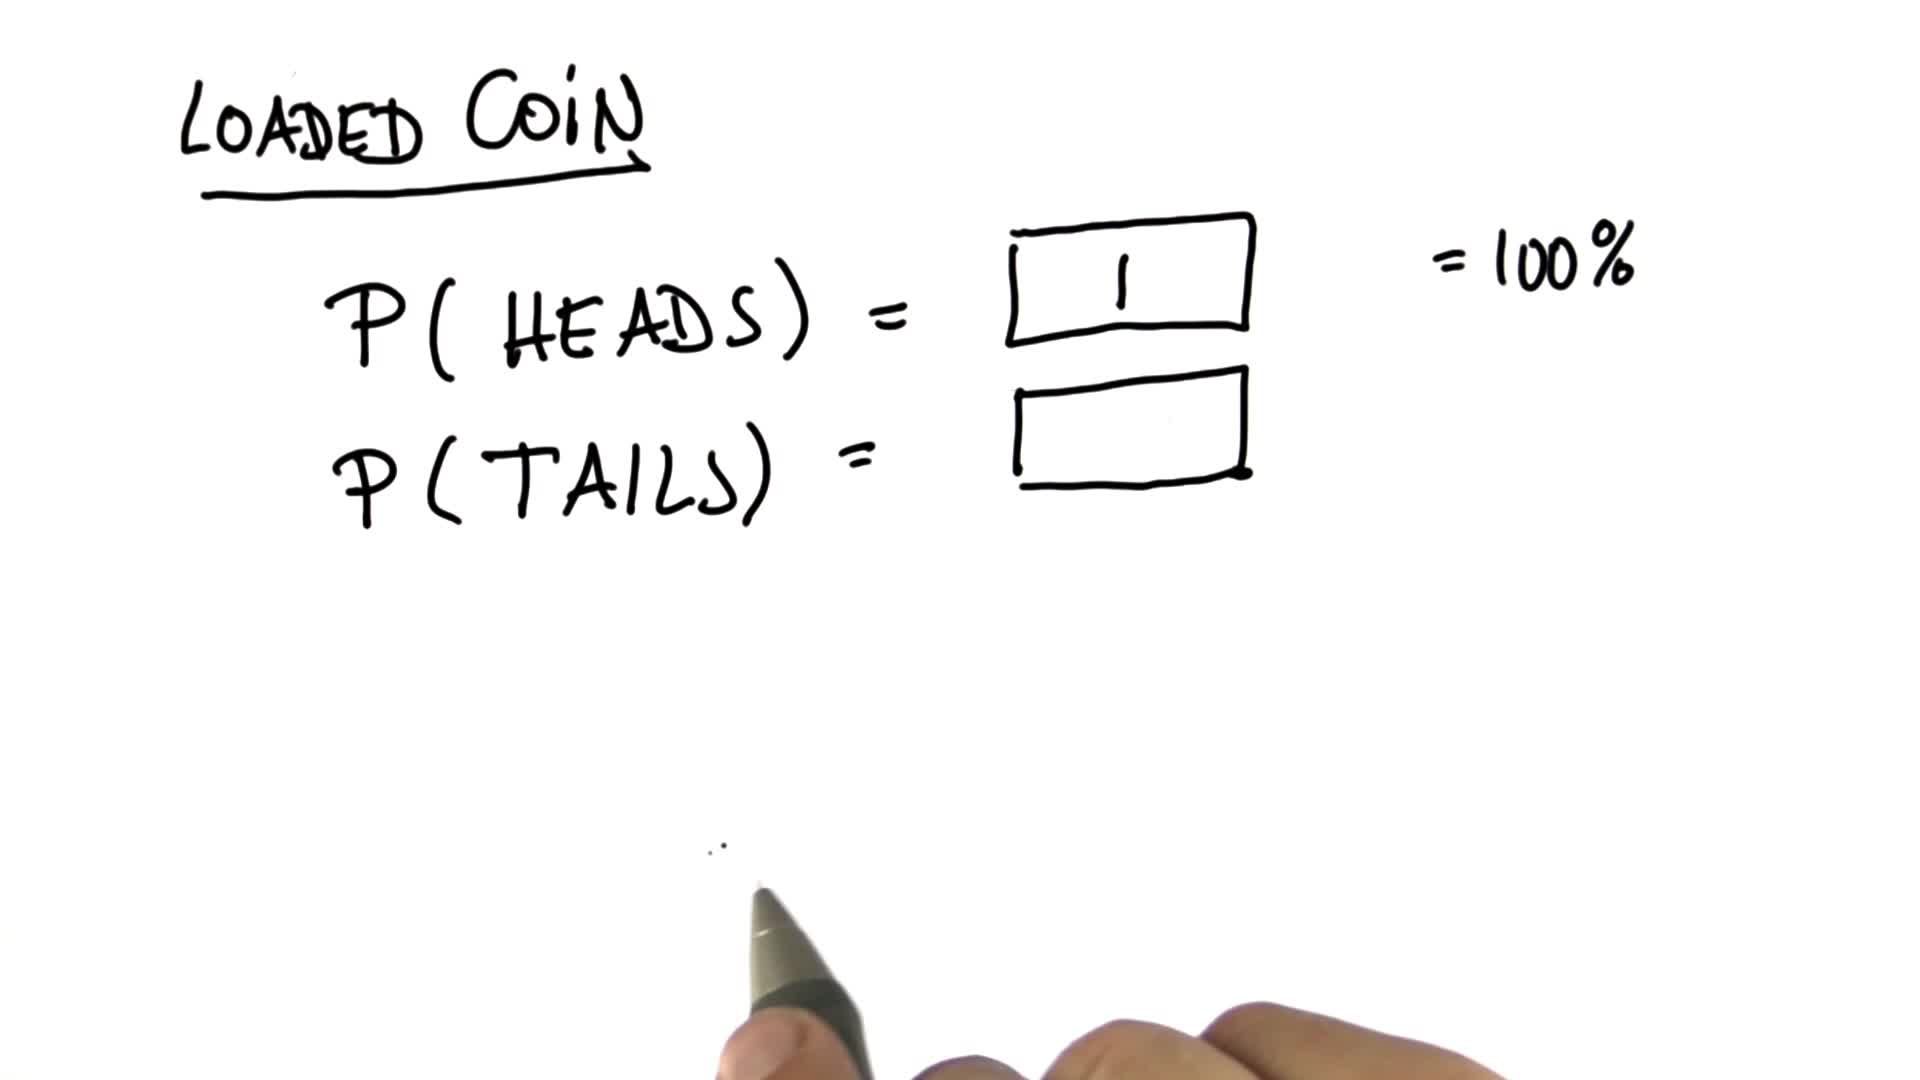 LOADED COIN
P(HEADS) = 1 = 100%
P(TAILS) =